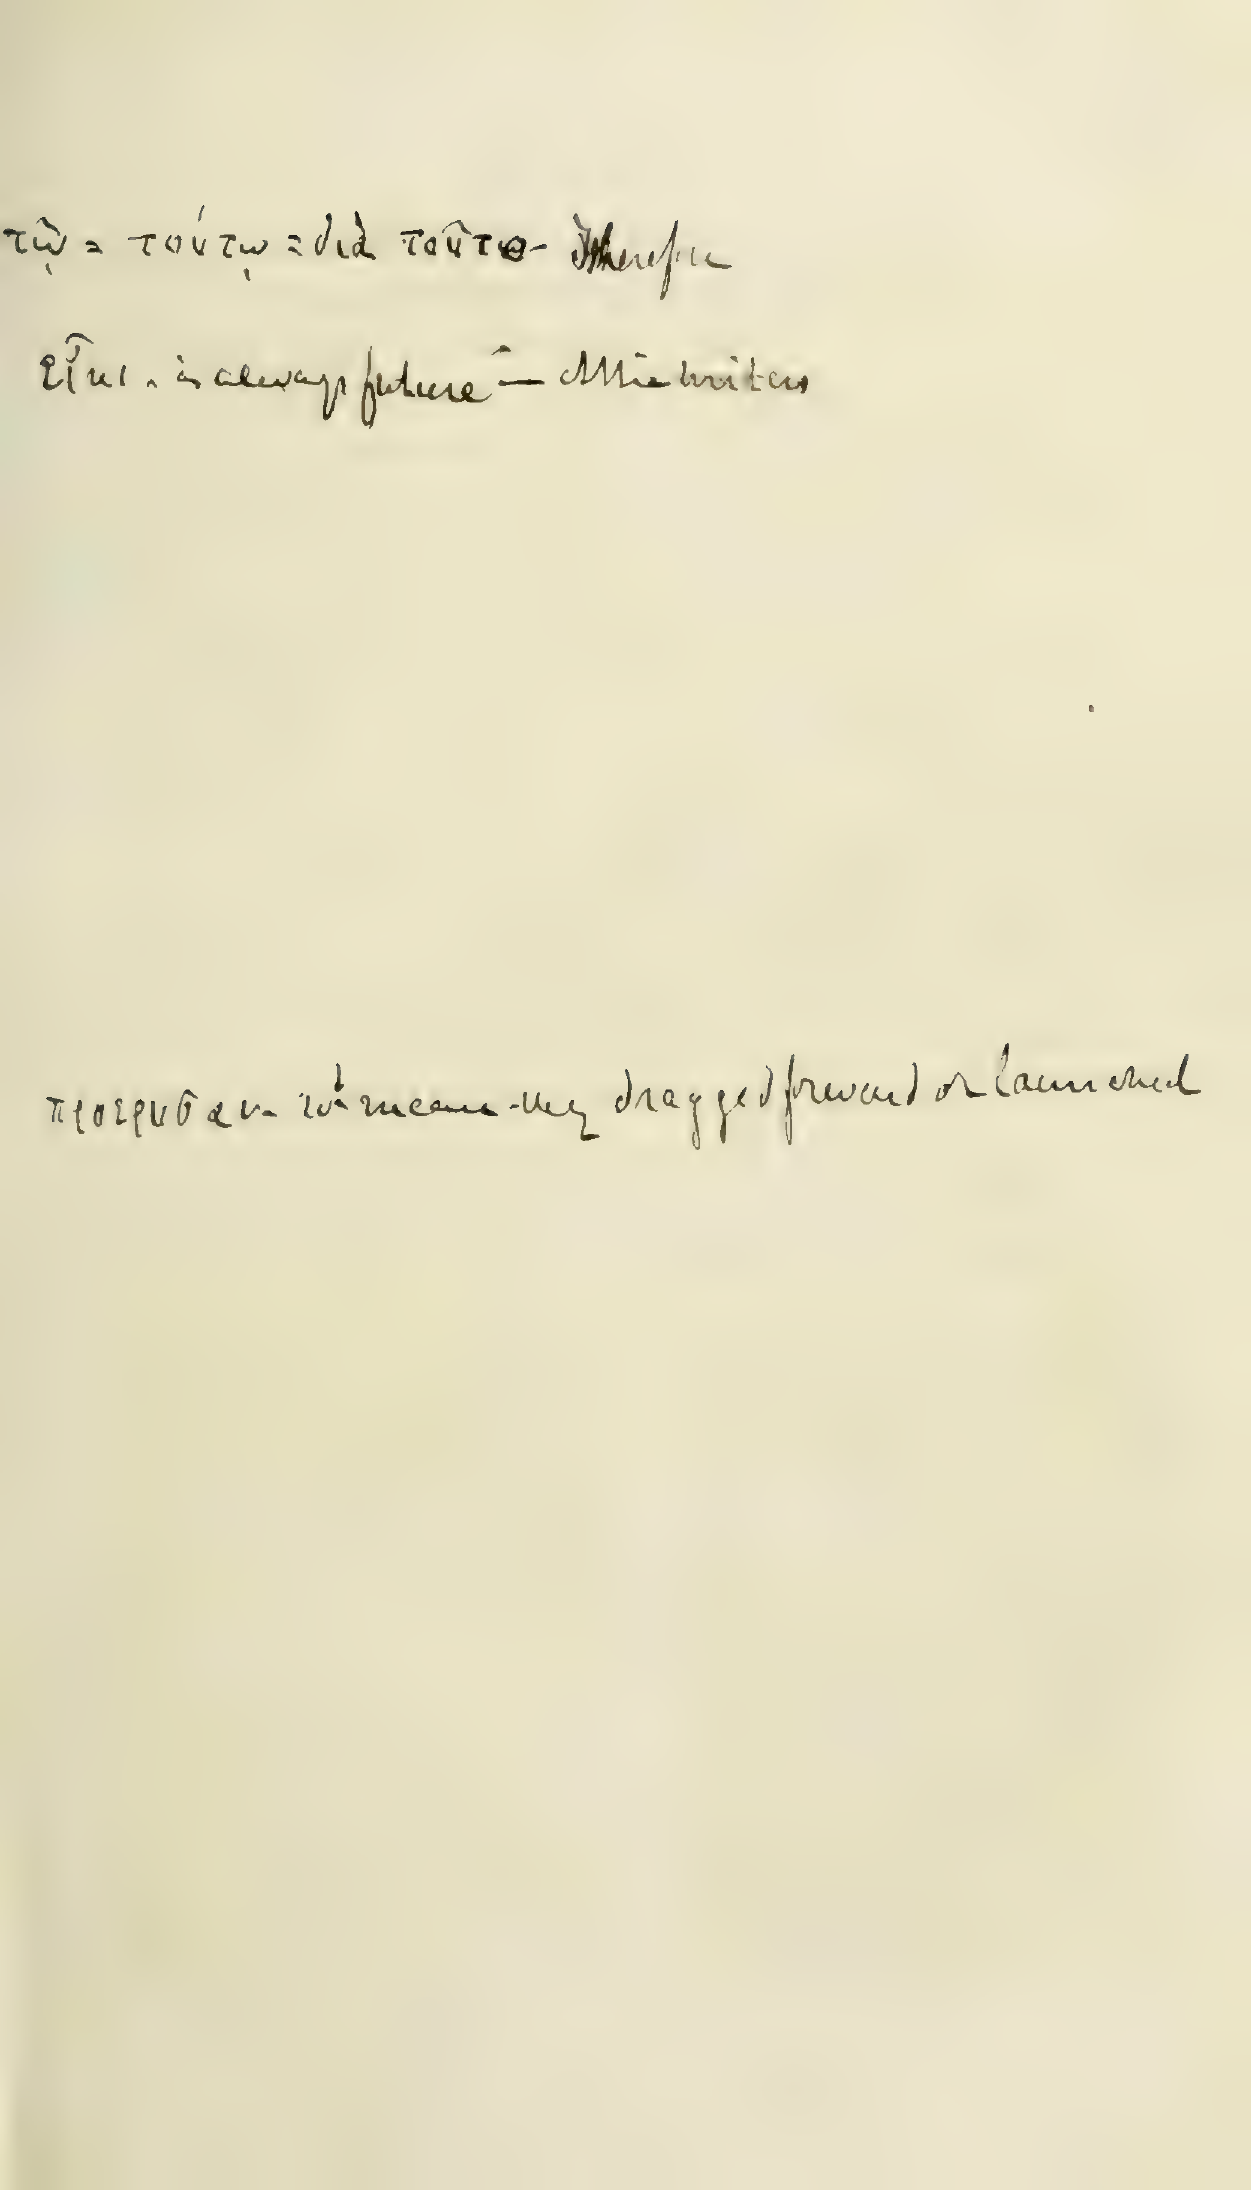 τῷ = τούτῳ = διὰ τοῦτο - Therefore
εἶμι . is always future in Attic writers
προερυσαν - wd mean they dragged forward or launched